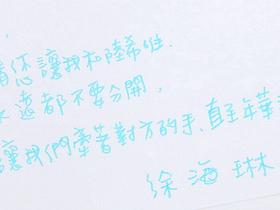 着您讓我和陸希唯.
永遠都不要分開,
讓我們牽著對方的手、直至年華
徐海琳